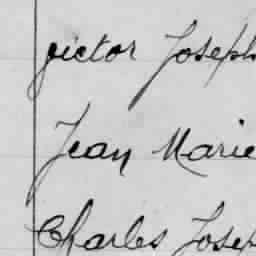 Victor Joseph
Jean Marie
Charles Josep